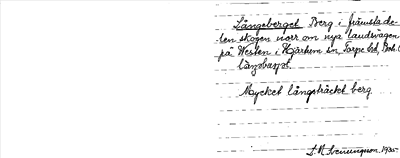 Långeberget Berg i främsta de-
len skogen norr om nya landsvägen
på Westen i Hjärtum sn, Torpe hd, Boh. l.
långbærjet.
Mycket långsträckt berg.
J. N. Svenungsson. 1935.